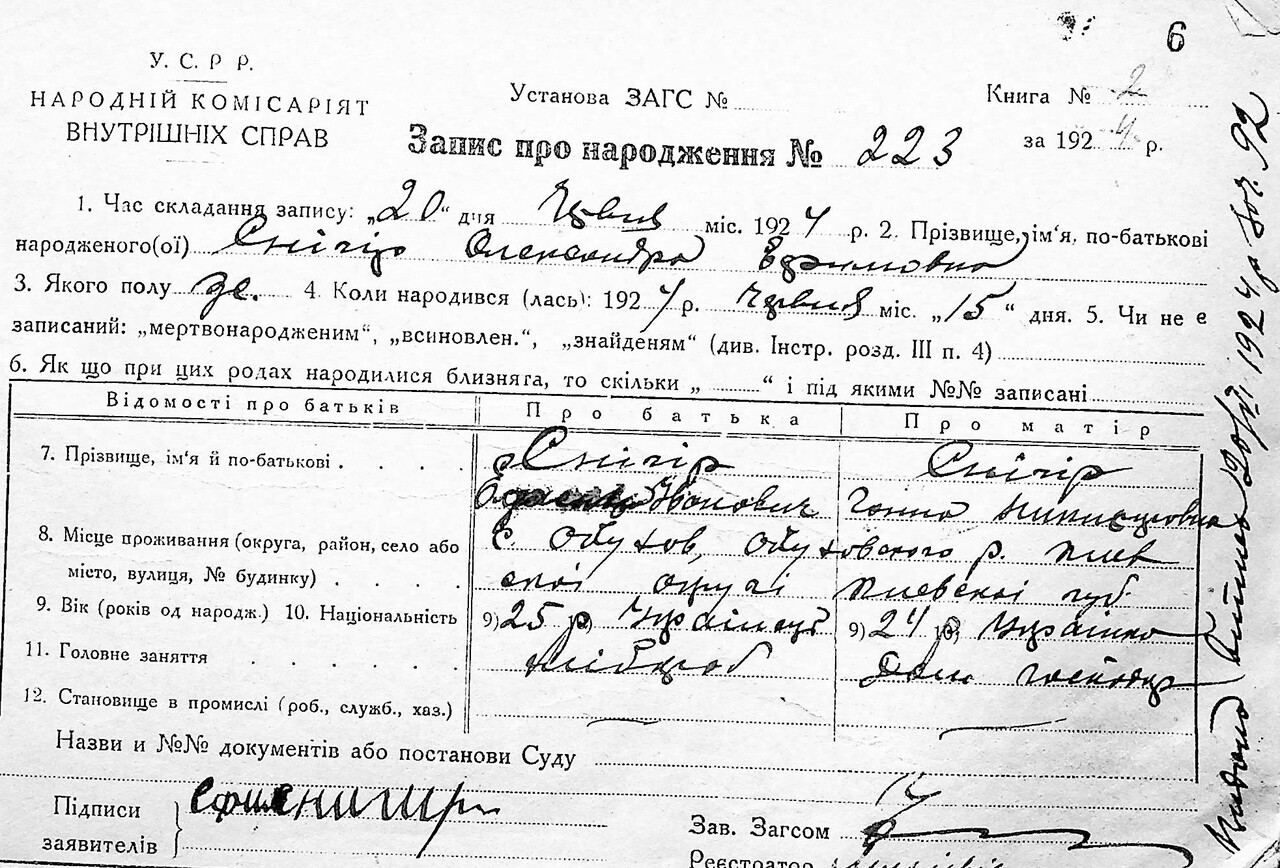 6
У. С. Р. Р.
НАРОДНІЙ КОМІСАРІЯТ
ВНУТРІШНІХ СПРАВ
Установа ЗАГС №
Книга № 2
за 1924 р.
Запис про народження № 223
1. Час складання запису: „20“ дня Червня міс. 1924 р. 2. Прізвище, ім‘я, по-батькові
народженого(ої) Снігір Олександра Ефимовна
3. Якого полу ж. 4. Коли народився (лась): 1924 р. Червня міс. „15“ дня. 5. Чи не є
записаний: „мертвонародженим“, „всиновлен.“, „знайденям“ (див. Інстр. розд. III п. 4)
6. Як що при цих родах народилися близняга, то скільки „ “ і під якими №№ записані
Відомості про батьків Про батька Про матір
7. Прізвище, ім'я й по-батькові Снігір Снігір
Іванович Ганна
8. Місце проживання (округа, район, село або с. Обухов, Обуховского р. Киев
місто, вулиця, № будинку) скоі округі Киевскоі губ.
9. Вік (років од народж.) 10. Національність 9) 25 р Українець 9) 24 р. Українка
11. Головне заняття хлібороб Дом. господар
12. Становище в промислі (роб., служб., хаз.)
Назви и №№ документів або постанови Суду
Підписи
заявителів
Зав. Загсом
Реєстратор
Видана 20/VI 1924 р 92